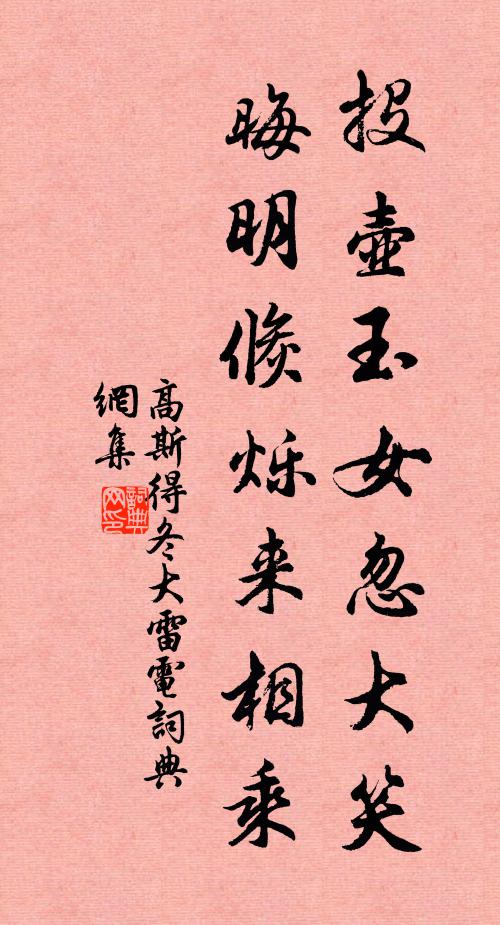 投壺玉女忽大笑
晦明倏烁来相乘
高斯得冬大雷電詞典
網集
詞典
网印